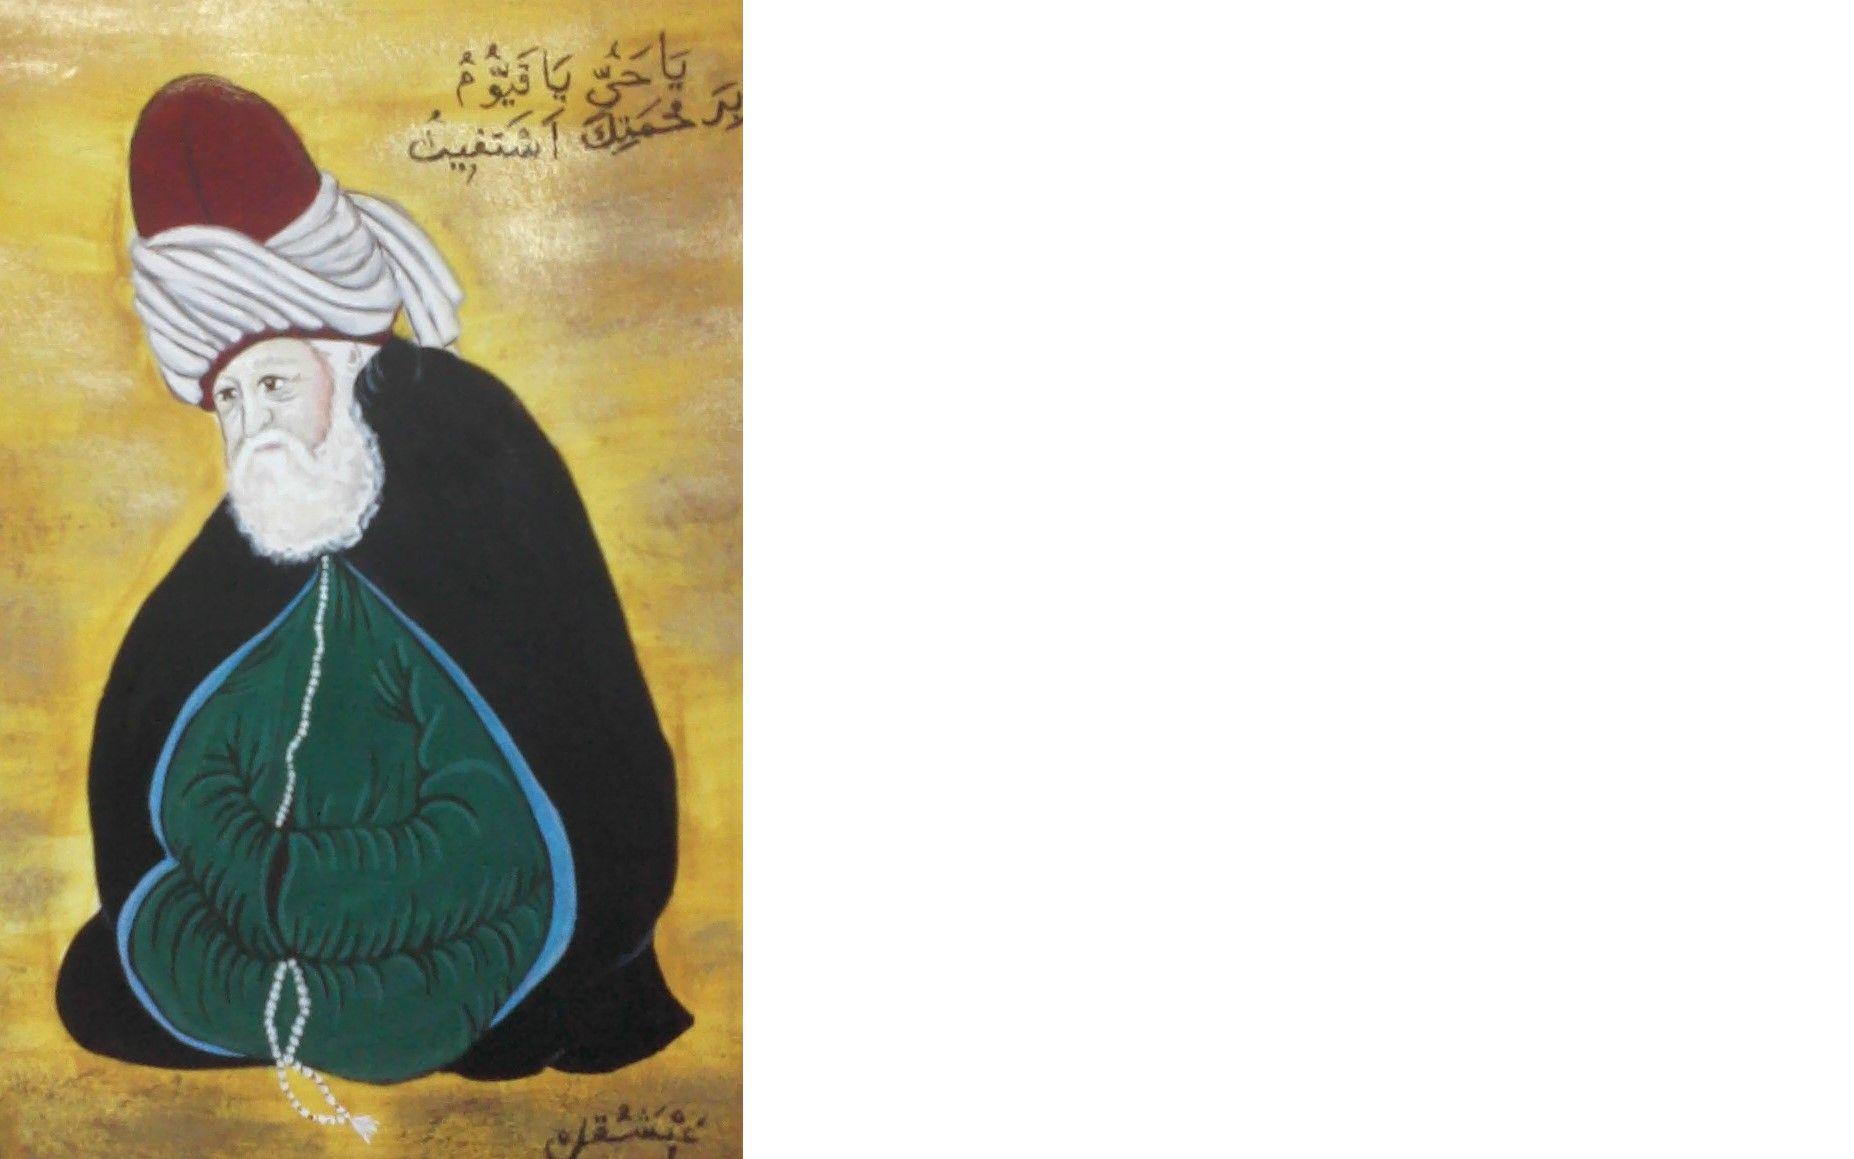 يَا حَيُّ يَا قَيُّومُ
بِرَحْمَتِكَ أَسْتَغِيثُ